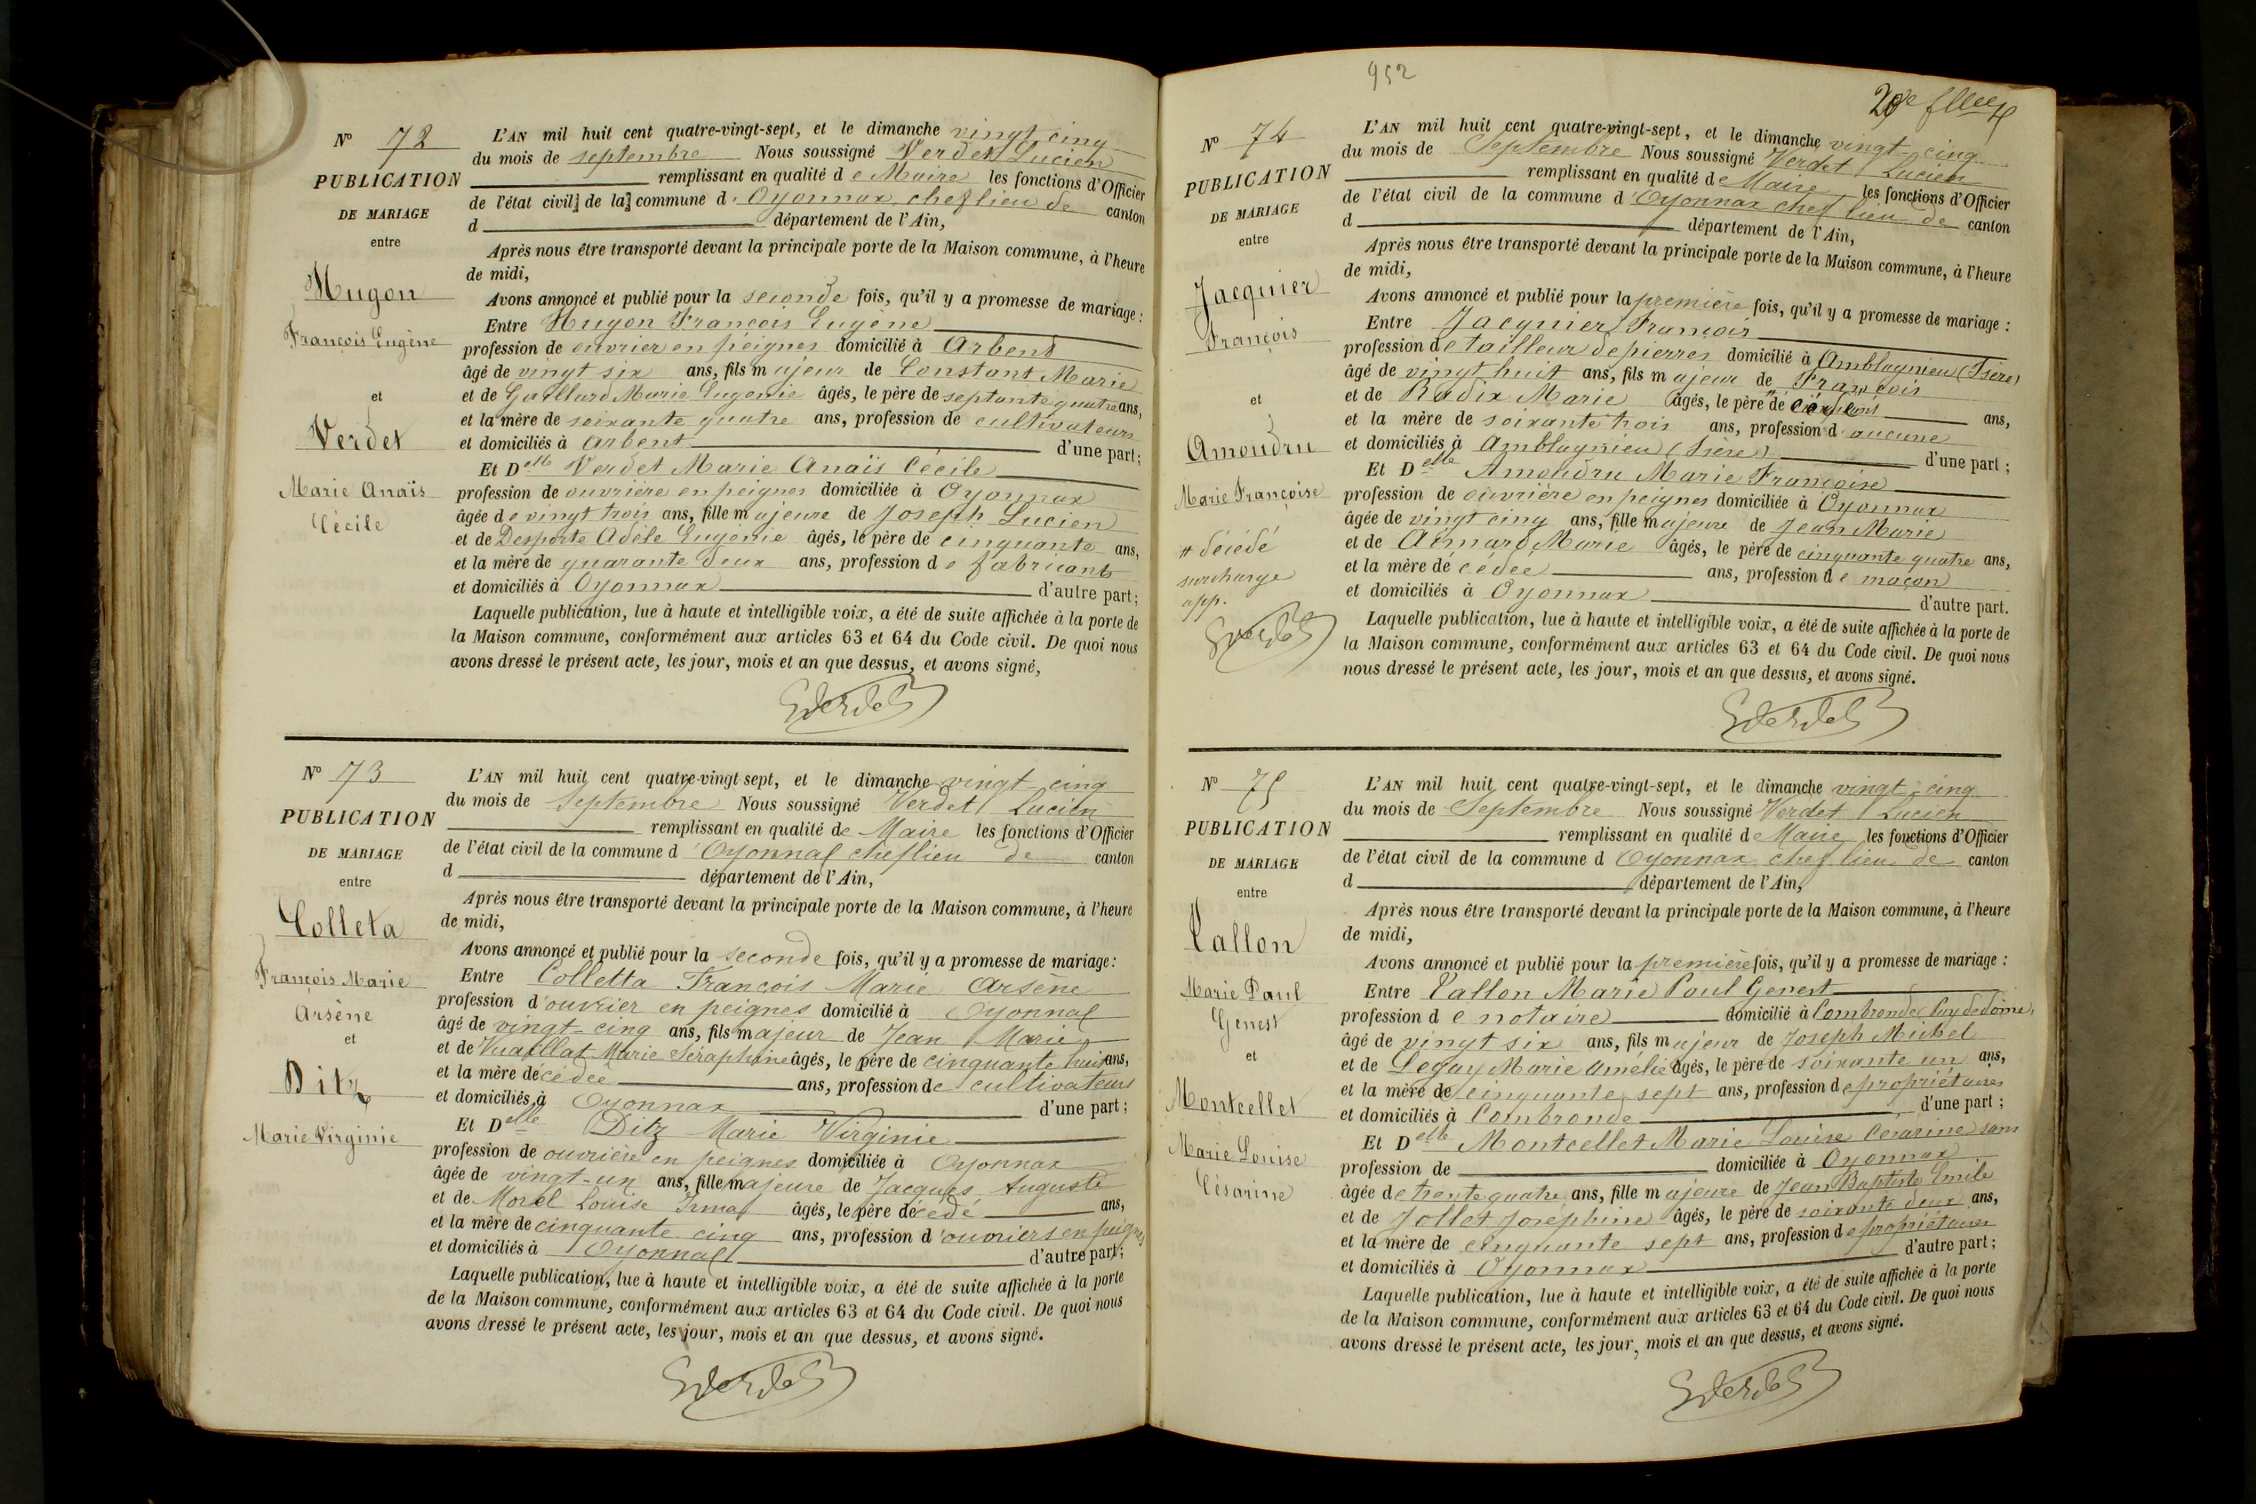 Nº 72
PUBLICATION
DE MARIAGE
entre
Hugon
François Eugène
et
Verdet
Marie Anaïs
Cécile
L'AN mil huit cent quatre-vingt-sept, et le dimanche vingt cinq
du mois de septembre Nous soussigné Verdet Lucien
remplissant en qualité de Maire les fonctions d'Officier
de l'état civil de la commune d'Oyonnax chef lieu de canton
d département de l'Ain,
Après nous être transporté devant la principale porte de la Maison commune, à l'heure
de midi,
Avons annoncé et publié pour la seconde fois, qu'il y a promesse de mariage :
Entre Hugon François Eugène
profession de ouvrier en peignes domicilié à Arbent
âgé de vingt six ans, fils majeur de Constant Marie
et de Gaillard Marie Eugénie âgés, le père de septante quatre ans,
et la mère de soixante quatre ans, profession de cultivateurs
et domiciliés à Arbent d'une part ;
Et Delle Verdet Marie Anaïs Cécile
profession de ouvrière en peignes domiciliée à Oyonnax
âgée de vingt trois ans, fille majeure de Joseph Lucien
et de Desporte Adèle Eugénie âgés, le père de cinquante ans,
et la mère de quarante deux ans, profession de fabricants
et domiciliés à Oyonnax d'autre part ;
Laquelle publication, lue à haute et intelligible voix, a été de suite affichée à la porte de
la Maison commune, conformément aux articles 63 et 64 du Code civil. De quoi nous
avons dressé le présent acte, les jour, mois et an que dessus, et avons signé,
Verdet
Nº 73
PUBLICATION
DE MARIAGE
entre
Colleta
François Marie
Arsène
et
Ditz
Marie Virginie
L'AN mil huit cent quatre-vingt sept, et le dimanche vingt-cinq
du mois de Septembre Nous soussigné Verdet Lucien
remplissant en qualité de Maire les fonctions d'Officier
de l'état civil de la commune d'Oyonnax chef lieu de canton
d département de l'Ain,
Après nous être transporté devant la principale porte de la Maison commune, à l'heure
de midi,
Avons annoncé et publié pour la seconde fois, qu'il y a promesse de mariage :
Entre Colletta François Marie Arsène
profession d'ouvrier en peignes domicilié à Oyonnax
âgé de vingt-cinq ans, fils majeur de Jean Marie
et de Vuaillat Marie Séraphine âgés, le père de cinquante huit ans,
et la mère décédée ans, profession de cultivateurs
et domiciliés à Oyonnax d'une part ;
Et Delle Ditz Marie Virginie
profession de ouvrière en peignes domiciliée à Oyonnax
âgée de vingt-un ans, fille majeure de Jacques Auguste
et de Morel Louise Irma âgés, le père décédé ans,
et la mère de cinquante cinq ans, profession d'ouvriers en peignes
et domiciliés à Oyonnax d'autre part ;
Laquelle publication, lue à haute et intelligible voix, a été de suite affichée à la porte
de la Maison commune, conformément aux articles 63 et 64 du Code civil. De quoi nous
avons dressé le présent acte, les jour, mois et an que dessus, et avons signé.
Verdet
952
20e
Nº 74
PUBLICATION
DE MARIAGE
entre
Jacquier
François
et
Amoudru
Marie Françoise
# décédé
surcharge
app.
Verdet
L'AN mil huit cent quatre-vingt-sept, et le dimanche vingt-cinq
du mois de Septembre Nous soussigné Verdet Lucien
remplissant en qualité de Maire les fonctions d'Officier
de l'état civil de la commune d'Oyonnax chef lieu de canton
d département de l'Ain,
Après nous être transporté devant la principale porte de la Maison commune, à l'heure
de midi,
Avons annoncé et publié pour la première fois, qu'il y a promesse de mariage :
Entre Jacquier François
profession de tailleur de pierres domicilié à Amblagnieu (Isère)
âgé de vingt huit ans, fils majeur de François
et de Radix Marie âgés, le père décédé ans,
et la mère de soixante trois ans, profession d'aucune
et domiciliés à Amblagnieu (Isère) d'une part ;
Et Delle Amoudru Marie Françoise
profession de ouvrière en peignes domiciliée à Oyonnax
âgée de vingt cinq ans, fille majeure de Jean Marie
et de Aimard Marie âgés, le père de cinquante quatre ans,
et la mère décédée ans, profession de maçon
et domiciliés à Oyonnax d'autre part.
Laquelle publication, lue à haute et intelligible voix, a été de suite affichée à la porte de
la Maison commune, conformément aux articles 63 et 64 du Code civil. De quoi nous
nous dressé le présent acte, les jour, mois et an que dessus, et avons signé.
Verdet
Nº 75
PUBLICATION
DE MARIAGE
entre
Tallon
Marie Paul
Genest
et
Montcellet
Marie Louise
Césarine
L'AN mil huit cent quatre-vingt-sept, et le dimanche vingt-cinq
du mois de Septembre Nous soussigné Verdet Lucien
remplissant en qualité de Maire les fonctions d'Officier
de l'état civil de la commune d Oyonnax chef lieu de canton
d département de l'Ain,
Après nous être transporté devant la principale porte de la Maison commune, à l'heure
de midi,
Avons annoncé et publié pour la première fois, qu'il y a promesse de mariage :
Entre Tallon Marie Paul Genest
profession de notaire domicilié à Combronde (Puy de dôme)
âgé de vingt six ans, fils majeur de Joseph Michel
et de Legay Marie Amélie âgés, le père de soixante un ans,
et la mère de cinquante sept ans, profession de propriétaires
et domiciliés à Combronde d'une part ;
Et Delle Montcellet Marie Louise Césarine sans
profession de domiciliée à Oyonnax
âgée de trente quatre ans, fille majeure de Jean Baptiste Emile
et de Jollet Joséphine âgés, le père de soixante deux ans,
et la mère de cinquante sept ans, profession de propriétaires
et domiciliés à Oyonnax d'autre part ;
Laquelle publication, lue à haute et intelligible voix, a été de suite affichée à la porte
de la Maison commune, conformément aux articles 63 et 64 du Code civil. De quoi nous
avons dressé le présent acte, les jour, mois et an que dessus, et avons signé.
Verdet